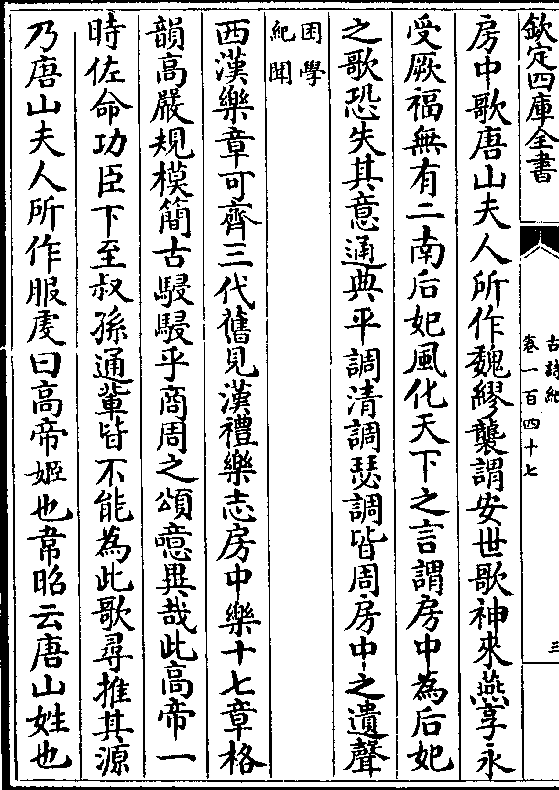 欽定四庫全書
古詩紀
卷一百四十七
三
房中歌唐山夫人所作魏繆襲謂安世歌神來燕享永
受厥福無有二南后妃風化天下之言謂房中為后妃
之歌恐失其意通典平調清調瑟調皆周房中之遺聲
困學
紀聞
西漢樂章可齊三代舊見漢禮樂志房中樂十七章格
韻高嚴規模簡古駸駸乎商周之頌噫異哉此高帝一
時佐命功臣下至叔孫通輩皆不能為此歌尋推其源
乃唐山夫人所作服虔曰高帝姬也韋昭云唐山姓也